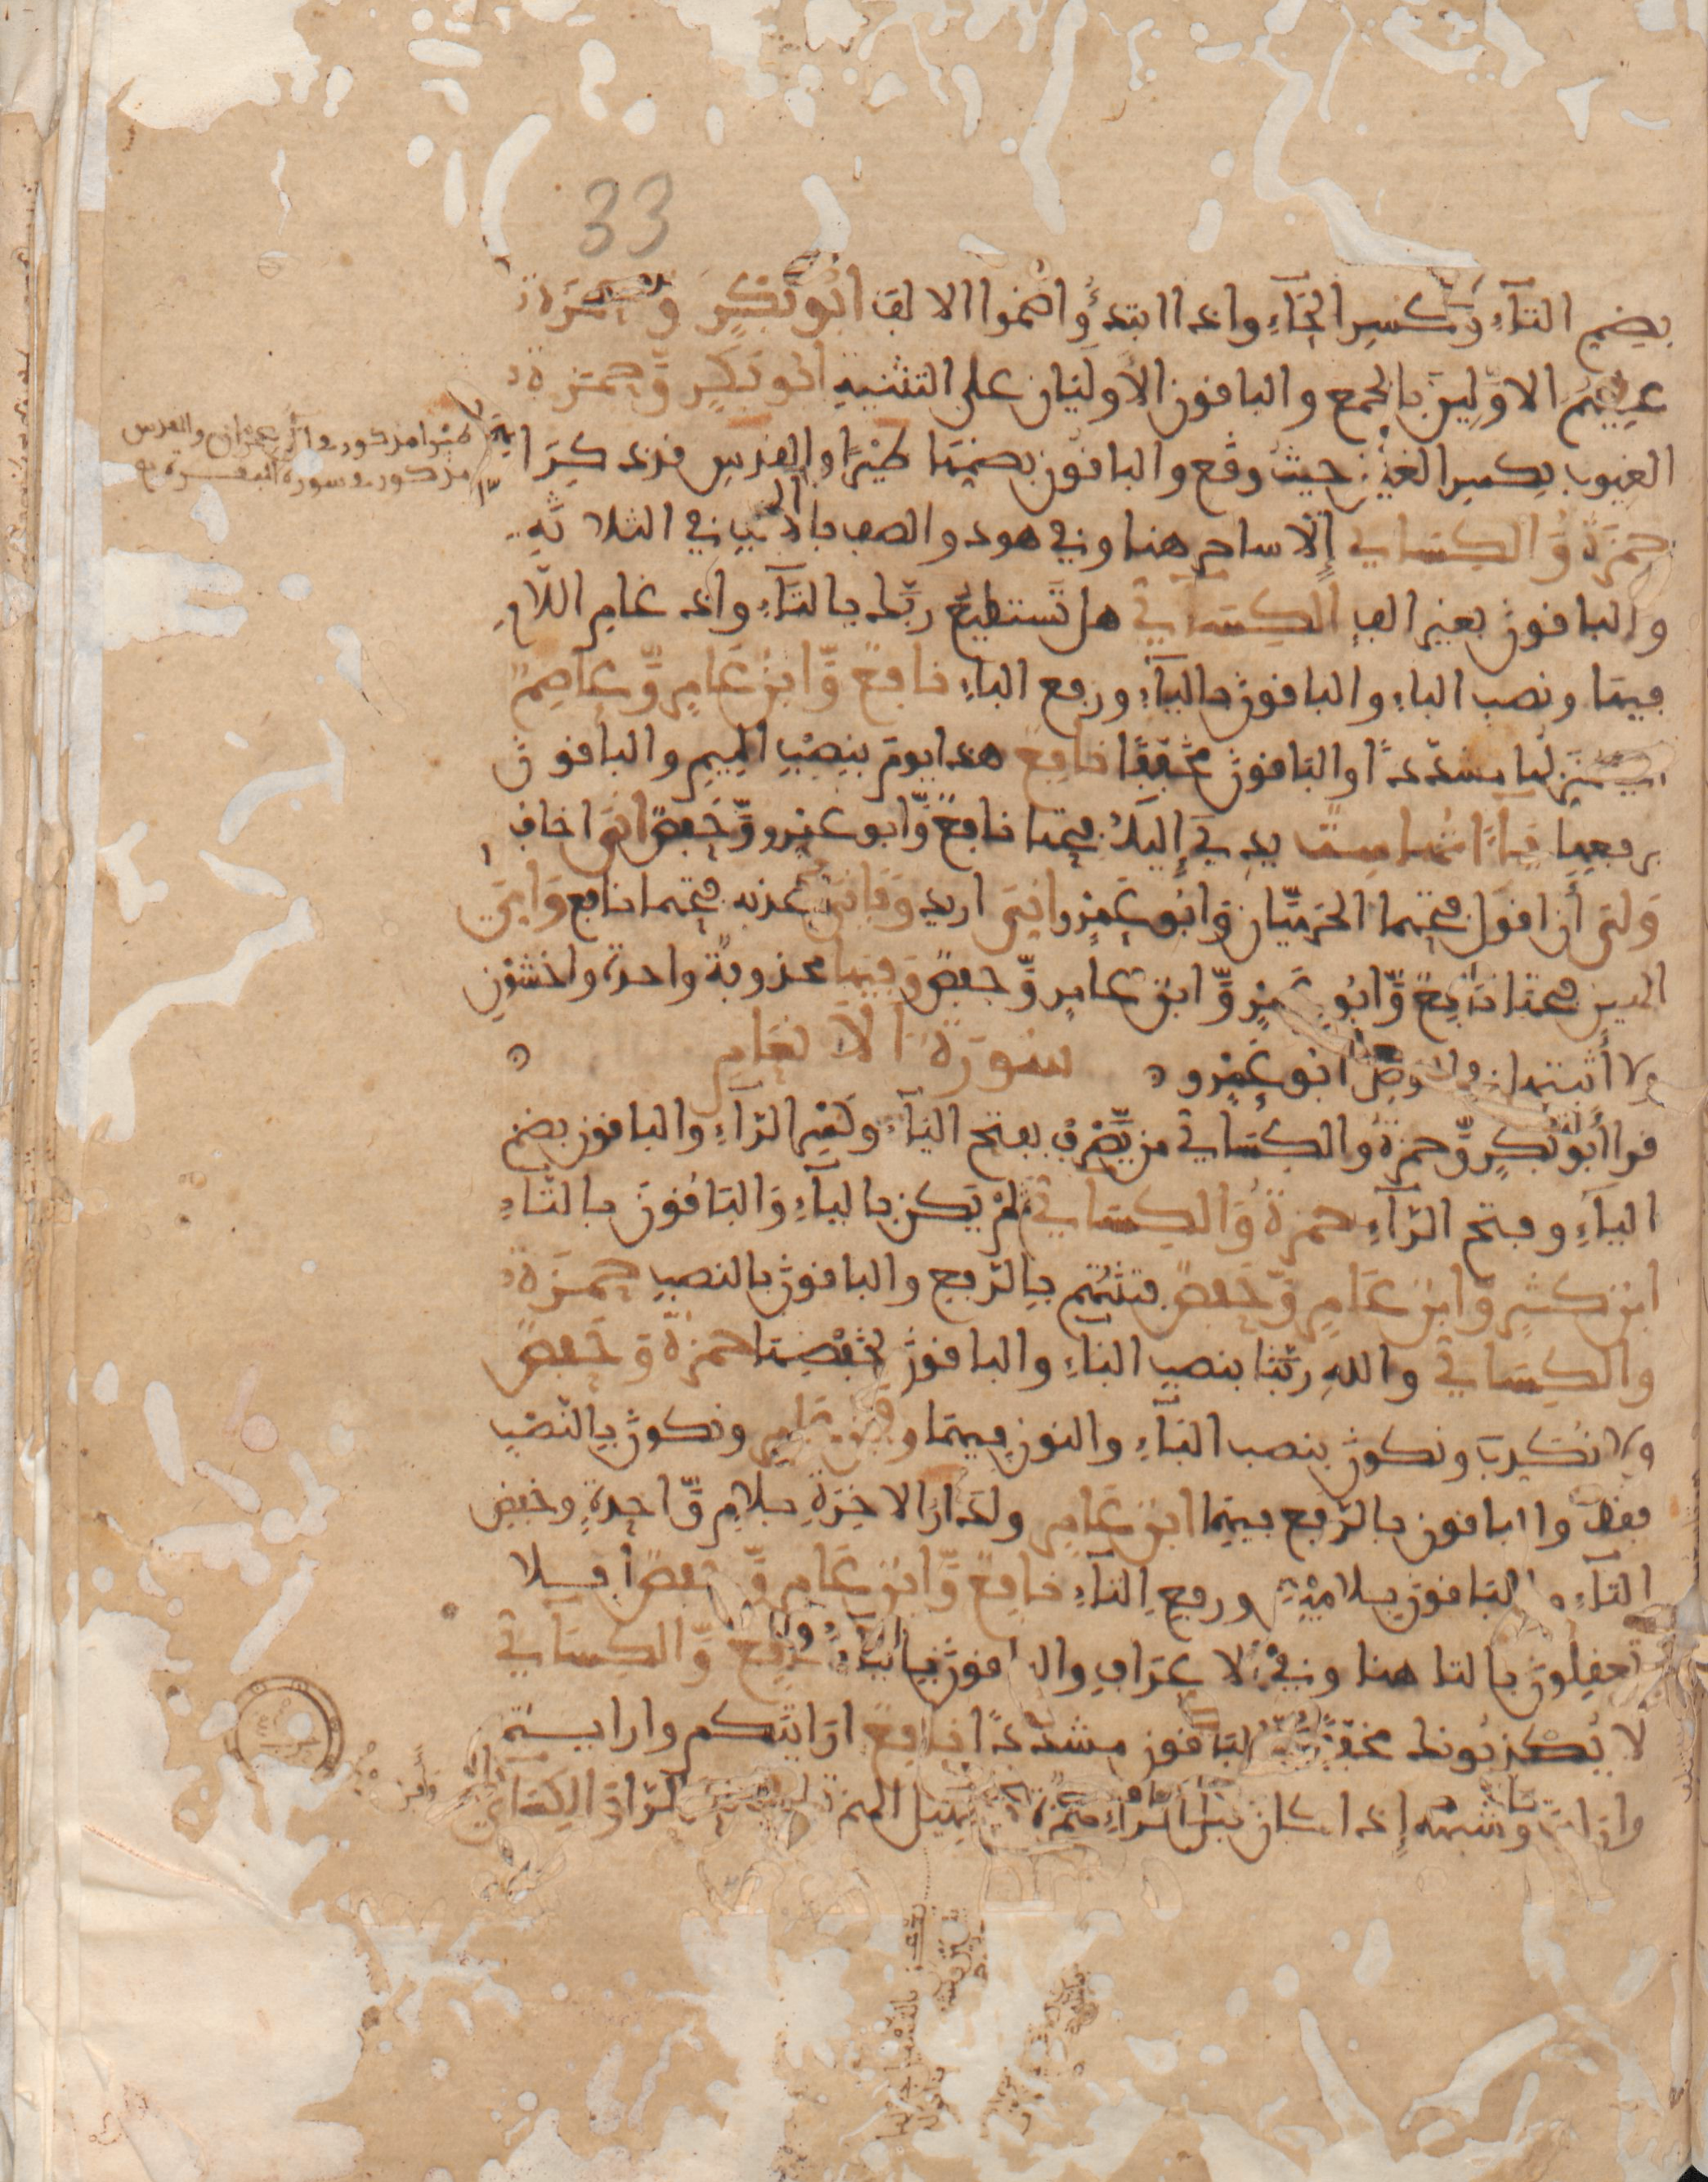 33
بضم التآء وكسر الخآء واذا ابتدؤا ضموا الالف ابوبكر وحمزة
عليهم الاولين بالجمع والباقون الاوليان على التثنية ابوبكر وحمزة
الغيوب بكسر الغين حيث وقع والباقون بضمها طيرا والقدس قد ذكرا
طيرا مذكور في ال عمران والقدس
مذكور في سورة البقرة
حمزة والكسائي إلا ساحر هنا وفي هود والصف بالالف في الثلاثة
والباقون بغير الف الكسآئي هل تستطيع ربك بالتآء وادغام اللام
فيها ونصب الباء والباقون باليآء ورفع الباء نافع وابن عامر وعاصم
منزلها مشددا والباقون مخففا نافع هذا يوم بنصب الميم والباقون
برفعها يآآتها ست يدي إليك فتحها نافع وابو عمرو وحفص اني اخاف
ولي أن اقول فتحها الحرميان وابو عمرو اني اريد وفاني اعذبه فتحهما نافع وامي
الهين فتحها نافع وابو عمرو وابن عامر وحفص وفيها محذوفة واحدة واخشون
ولا أثبتها في الوصل ابو عمرو سورة الانعام
قرا أبو بكر وحمزة والكسائي من يصرف بفتح اليآء وكسر الرآء والباقون بضم
اليآء وفتح الرآء حمزة والكسائي ثم لم يكن باليآء والباقون بالتاء
ابن كثير وابن عامر وحفص فتنتهم بالرفع والباقون بالنصب حمزة
والكسائي والله ربنا بنصب البآء والباقون بخفضها حمزة وحفص
ولا نكذب ونكون بنصب البآء والنون فيهما وابن عامر ونكون بالنصب
فقط والباقون بالرفع فيهما ابن عامر ولدار الاخرة بلام واحدة وخفض
التآء والباقون بلامين ورفع التآء نافع وابن عامر وحفص افلا
تعقلون بالتا هنا وفي الاعراف والباقون باليآء نافع والكسائي
لا يكذبونك مخففا والباقون مشددا نافع ارايتكم وارايتم
وارايت وشبهه إذا كان قبل الرآء همزة بتسهيل الهمزة الكسائي